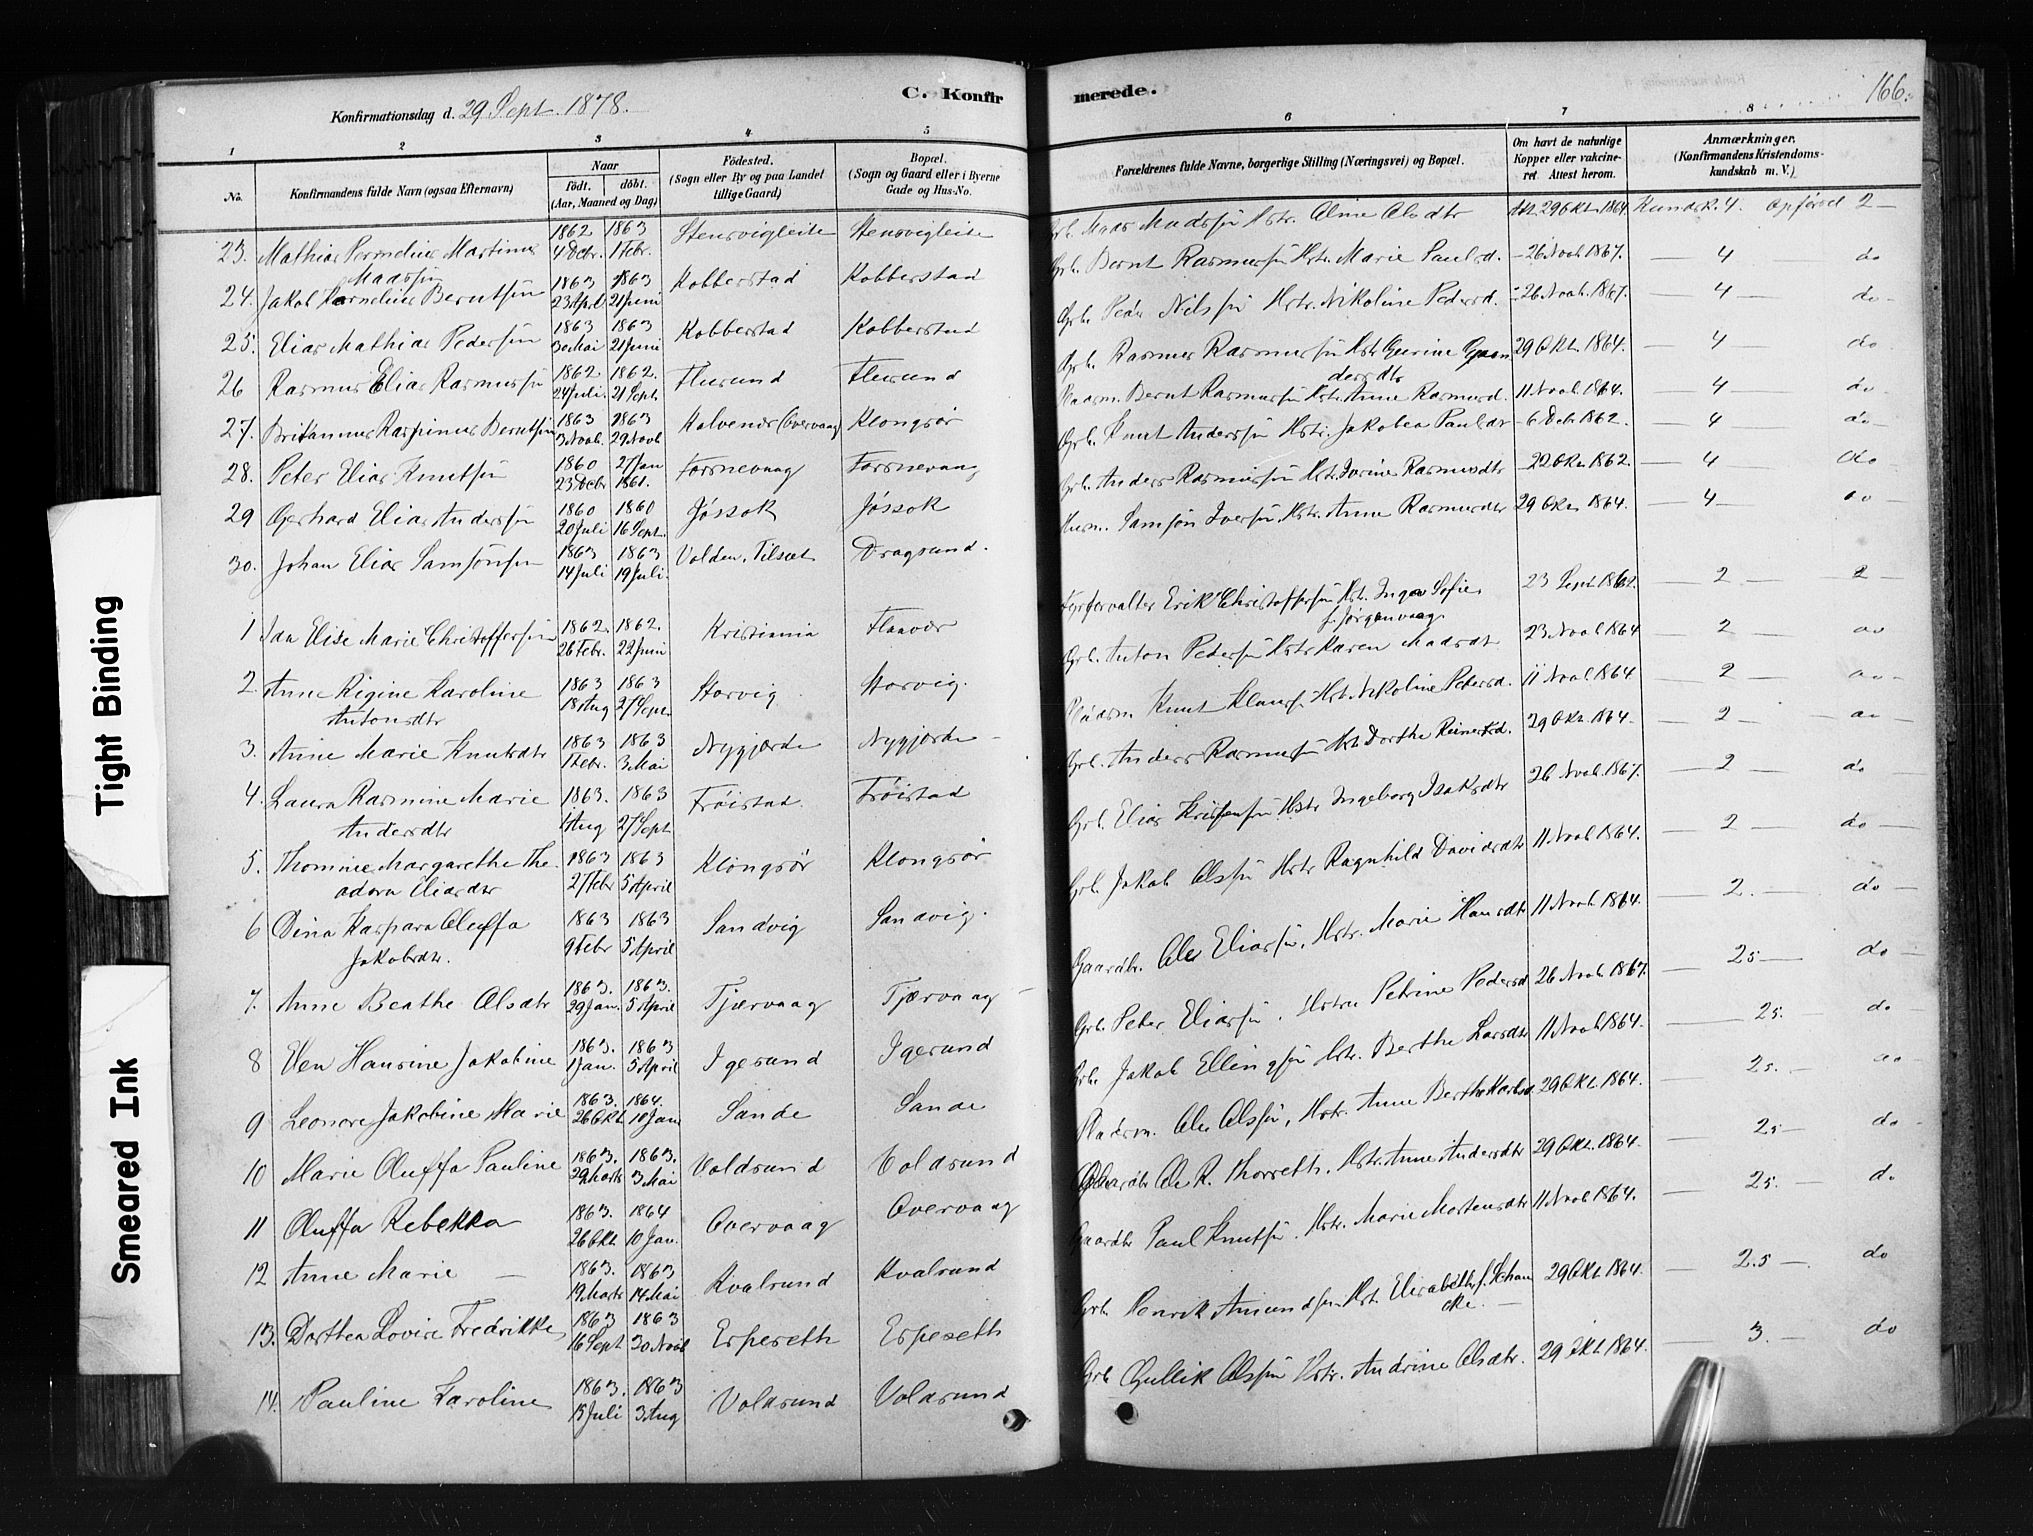 C. Konfirmerede.
166.
Konfirmationsdag d. 29 Sept. 1878.
1 2 3 4 5 6 7 8
No.
Konfirmandens fulde Navn (ogsaa Efternavn)
Naar
født. døbt.
(Aar, Maaned og Dag)
Fødested.
(Sogn eller By og paa Landet
tillige Gaard)
Bopæl.
(Sogn og Gaard eller i Byerne
Gade og Hus-No.
Forældrenes fulde Navne, borgerlige Stilling (Næringsvei) og Bopæl.
Om havt de naturlige
Kopper eller vakcine-
ret. Attest herom.
Anmærkninger.
(Konfirmandens Kristendoms-
kundskab m. V.)
23. Mathias Martinus Madssøn 1862 4 Decbr. 1863 1 Febr. Stensvigleite Stensvigleite Grb. Mads Madssøn Hstr. Oline Olsdtr 29 Okt. 1864 Kundsk. 4. Opførsel 2
24. Jakob Kornelius Berntsøn 1863 23 April 1863 21 Juni Kobberstad Kobberstad Grb. Bernt Rasmussøn Hstr. Marie Paulsd. 26 Novb. 1867. 4 do
25. Elias Mathias Pedersøn 1863 30 Mai 1863 21 Juni Kobberstad Kobberstad Grb. Peder Nilssøn Hstr. Nikoline Pedersd. 26 Novb. 1867. 4 do
26 Rasmus Elias Rasmussøn 1862 24 Juli. 1862. 21 Sept. Flusund Flusund Grb. Rasmus Rasmussøn Hstr 29 Okt. 1864. 4 do
27. Rasmus Berntsøn 1863 3 Novb. 1863 29 Novb Kalvenes (Overvaag) Klongsør Pladsm. Bernt Rasmussøn Hstr. Anne Rasmusd. 11 Novb. 1864. 4 do
28. Peter Elias Knutsøn 1860 23 Decbr 27 Jan 1861. Forsnevaag Forsnevaag Grb. Knut Anderssøn Hstr. Jakobea Paulsdr 6 Octb. 1862. 4 do
29 Gerhard Elias Anderssøn 1860 20 Juli 1860 16 Sept. Jøssok Jøssok Grb. Anders Rasmussøn Hstr. Rasmusdtr 22 Okt. 1862. 4 do
30. Johan Elias Samsonsøn 1863 14 Juli 1863 19 Juli. Volden, Tilset Dragsund. Husm. Samson Iversøn, Hstr. Anne Rasmusdtr 29 Okt. 1864. 4 do
1 Ida Elise Marie Christoffersen 1862. 26 Febr. 1862. 22 Juni Kristiania Flaavær Fyrforvalter Erik Christoffersen Hst. Inga Sofie f. Jørgenvaag 23 Sept 1862. 2 2
2. Anne Regine Karoline Antonsdtr 1863 18 Aug 1863 27 Sept. Storvig Storvig. Grb. Anton Pedersøn Hstr Karen Madsdtr 23 Novb 1864 2 do
3. Anne Marie Knutsdtr 1863 1 Febr. 1863 3 Mai Nygjærde Nygjærde Pladsm. Knut Hst. Nikoline Pedersd. 11 Novb 1864 2 do
4. Laura Rasmine Marie Andersdtr 1863. 1 Aug 1863 27 Sept Frøistad. Frøistad Grb. Anders Rasmussøn Hst. Dorthe Reinertsd. 29 Okt. 1864. 2 do
5. Thomine Margarethe Theodora Eliasdtr 1863 27 Febr 1863 5 April Klongsør Klongsør Grb. Elias Hstr Ingeborg Isaksdtr 26 Novb. 1867. 2 do
6 Dina Kaspara Oluffa Jakobsdtr. 1863 9 Febr 1863 5 April Sandvig Sandvig. Grb. Jakob Olssøn Hstr Ragnhild Davidsdtr 11 Novb. 1864. 2 do
7. Anne Beathe Olsdtr 1863. 29 Jan. 1863. 5 April Tjærvaag Tjærvaag Gaardbr. Ole Eliassøn, Hstr. Marie Hansdtr 11 Novb. 1864. 2. do
8 Elen Hansine Jakobine 1863. 1 Jan. 1863 5 April Igesund Igesund Grb. Peter Eliassøn. Hstru Petrine Pedersd 26 Novb. 1867. 25 do
9 Leonore Jakobine Marie 1863. 26 Okt 1864. 10 Jan Sande Sande Grb. Jakob Ellingsøn Hstr. Berthe Larsdtr 11 Novb 1864. 25. do
10 Marie Oluffa Pauline 1863. 29 Marts 1863. 3 Mai Voldsund Voldsund Pladsm. Ole Olssøn, Hstr. Anne Berthe 29 Okt. 1864. 25. do
11 Oluffa Rebekka 1863. 26 Okt 1864 10 Jan. Overvaag Overvaag Gaardbr Ole R. Thorseth. Hstr. Anne Andersdtr 29 Okt. 1864. 25 do
12 Anne Marie — 1863. 19 Marts 1863 14 Mai Kvalsund Kvalsund Gaardbr Paul Knutsøn. Hstr. Marie Mortensdtr 11 Novb 1864. 25. do
13. Dorthea Lovise Fredrikke 1863 16 Sept 1863 30 Novb Espeseth Espeseth Grb. Henrik Amundsen Hst. Elisabeth f. Schancke. 29 Okt. 1864. 2.5 do
14. Pauline Karoline 1863. 15 Juli 1863 3 Aug Voldsund Voldsund Grb Gullik Olssøn Hstr. Andrine Olsdtr. 29 Okt. 1864. 3. do
Tight Binding
Smeared Ink